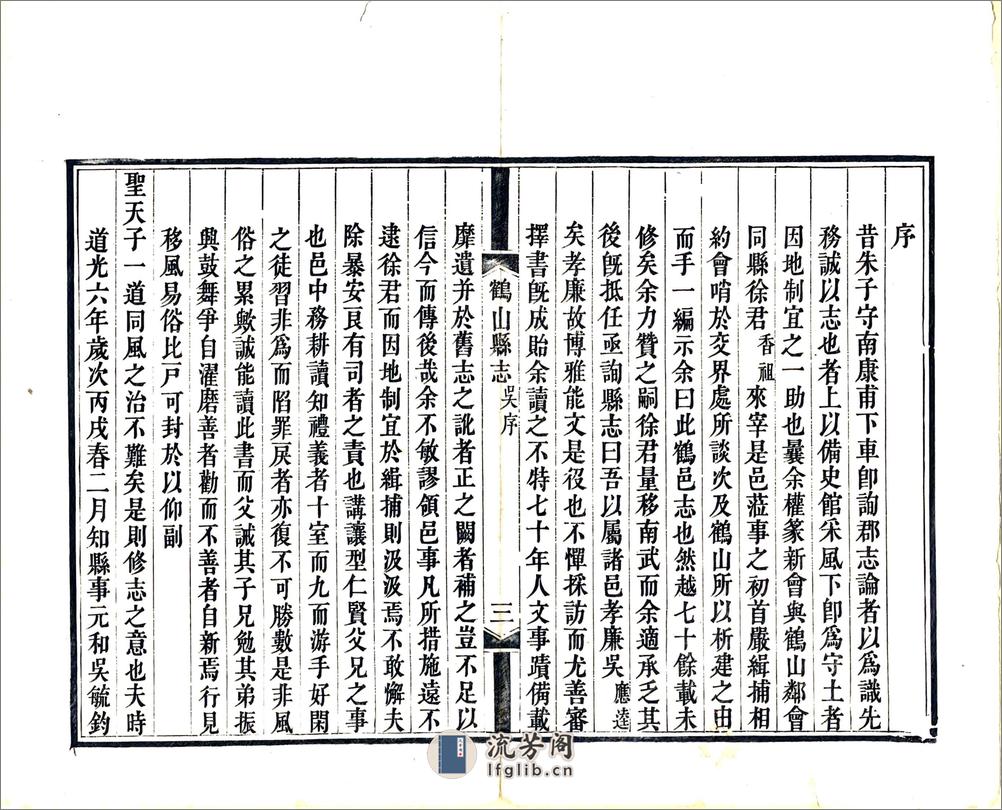 序
昔朱子守南康甫下車卽詢郡志論者以爲識先
務誠以志也者上以備史館采風下卽爲守土者
因地制宜之一助也曩余權篆新會與鶴山鄰會
同縣徐君香祖來宰是邑蒞事之初首嚴緝捕相
約會哨於交界處所談次及鶴山所以析建之由
而手一編示余曰此鶴邑志也然越七十餘載未
修矣余力贊之嗣徐君量移南武而余適承乏其
後旣抵任亟詢縣志曰吾以屬諸邑孝廉吳應逵
矣孝廉故博雅能文是役也不憚採訪而尤善審
擇書旣成貽余讀之不特七十年人文事蹟備載
鶴山縣志 吳序 三
靡遺并於舊志之訛者正之闕者補之豈不足以
信今而傳後哉余不敏謬領邑事凡所措施遠不
逮徐君而因地制宜於緝捕則汲汲焉不敢懈夫
除暴安良有司者之責也講讓型仁賢父兄之事
也邑中務耕讀知禮義者十室而九而游手好閑
之徒習非爲而陷罪戾者亦復不可勝數是非風
俗之累歟誠能讀此書而父誡其子兄勉其弟振
興鼓舞爭自濯磨善者勸而不善者自新焉行見
移風易俗比戶可封於以仰副
聖天子一道同風之治不難矣是則修志之意也夫時
道光六年歲次丙戌春二月知縣事元和吳毓鈞
流芳阁
lfglib.cn